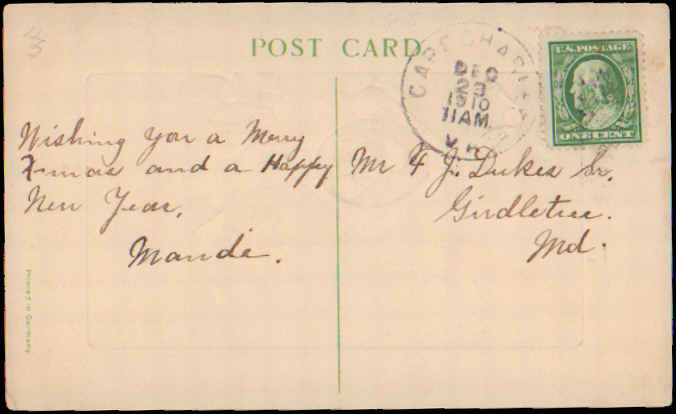 POST CARD
CAPE CHARLES
DEC
23
1910
11AM
VA.
U.S. POSTAGE
ONE CENT
Wishing you a Merry
X-mas and a Happy
New Year,
Maude.
Mr F J. Dukes Sr.
Girdletree.
Md.
Printed in Germany